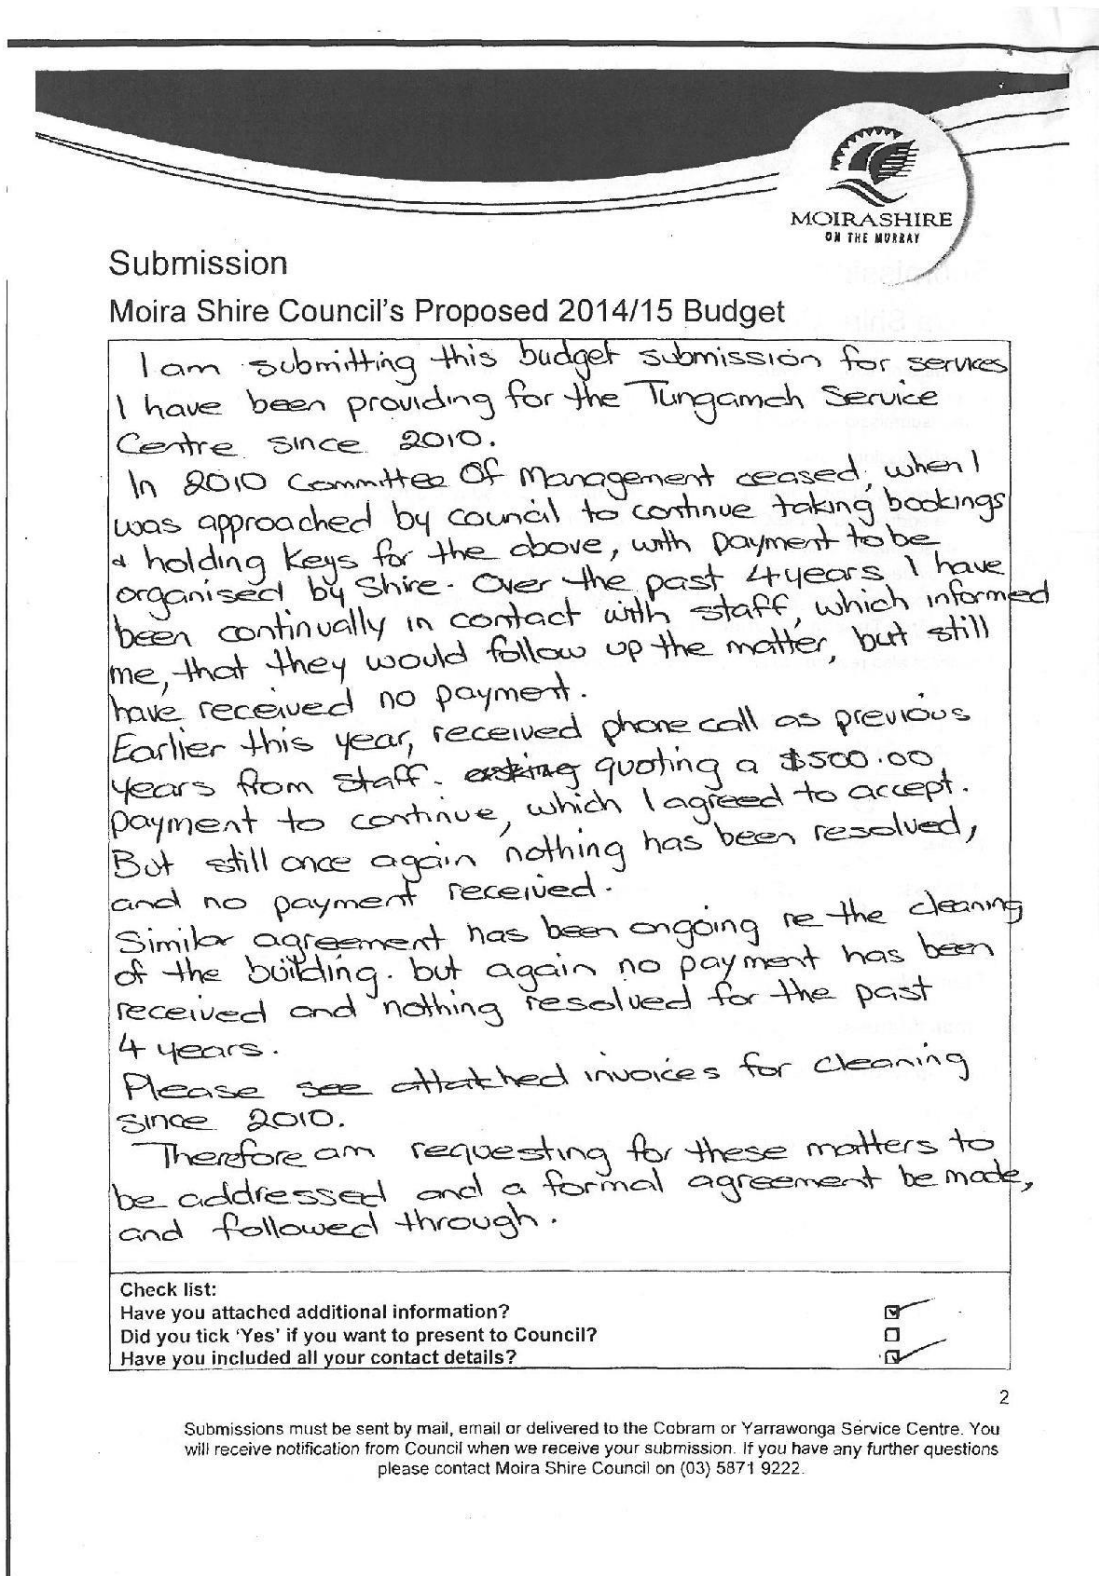 MOIRASHIRE
ON THE MURRAY
Submission
Moira Shire Council's Proposed 2014/15 Budget
I am submitting this budget submission for services
I have been providing for the Tungamah Service
Centre since 2010.
In 2010 Committee Of Management ceased, when I
was approached by council to continue taking bookings
& holding keys for the above, with payment to be
organised by Shire. Over the past 4 years, I have
been continually in contact with staff, which informed
me, that they would follow up the matter, but still
have received no payment.
Earlier this year, received phone call as previous
years from staff. quoting a $500.00
payment to continue, which I agreed to accept.
But still once again nothing has been resolved,
and no payment received.
Similar agreement has been ongoing re the cleaning
of the building. but again no payment has been
received and nothing resolved for the past
4 years.
Please see attatched invoices for cleaning
since 2010.
Therefore am requesting for these matters to
be addressed and a formal agreement be made,
and followed through.
Check list:
Have you attached additional information?
Did you tick 'Yes' if you want to present to Council?
Have you included all your contact details?
2
Submissions must be sent by mail, email or delivered to the Cobram or Yarrawonga Service Centre. You
will receive notification from Council when we receive your submission. If you have any further questions
please contact Moira Shire Council on (03) 5871 9222.